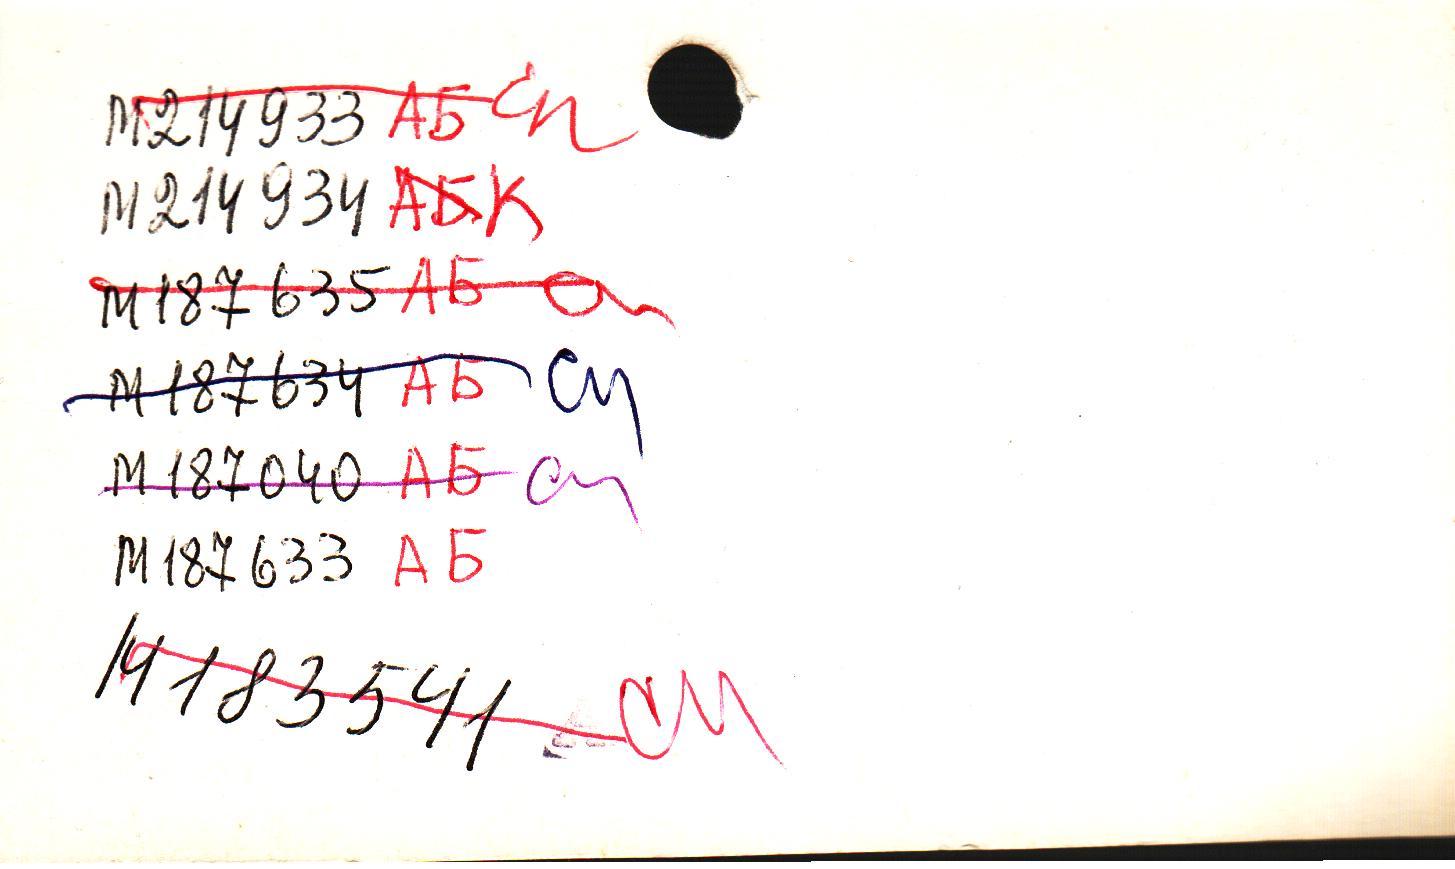 М214933 АБ сп
М214934 АБК
М187635 АБ
М187634 АБ сп
М187040 АБ сп
М187633 АБ
М183541 сп